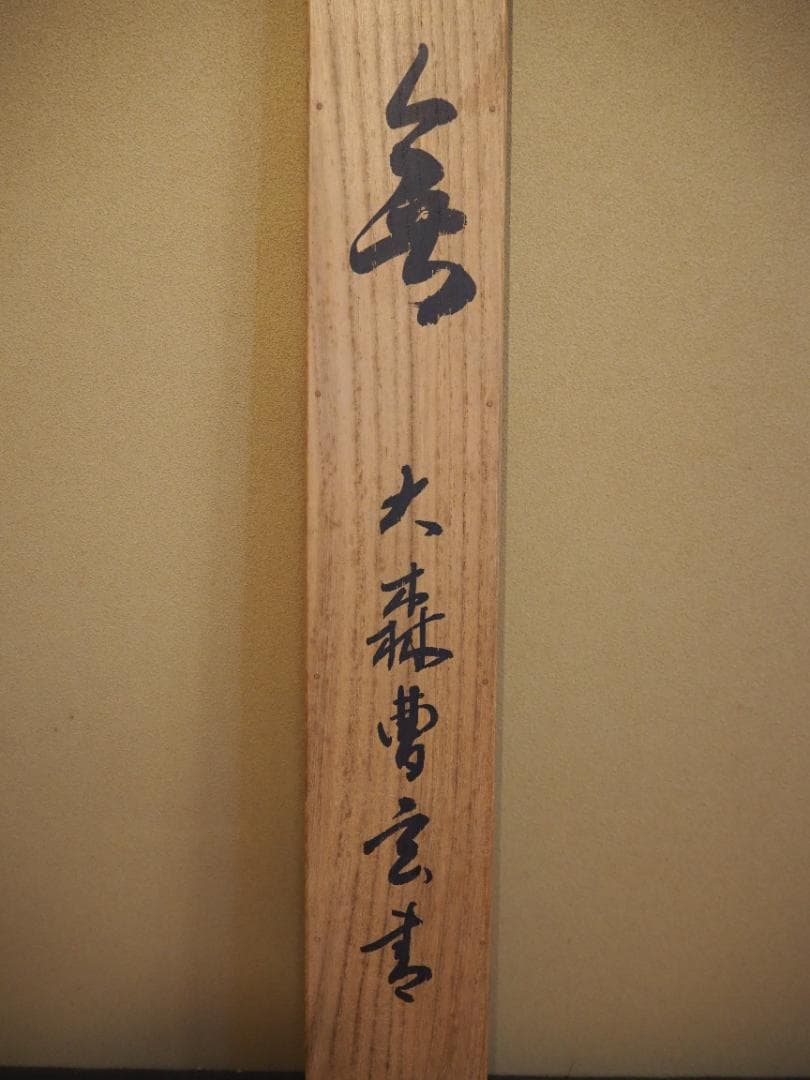 無
大森曹玄書